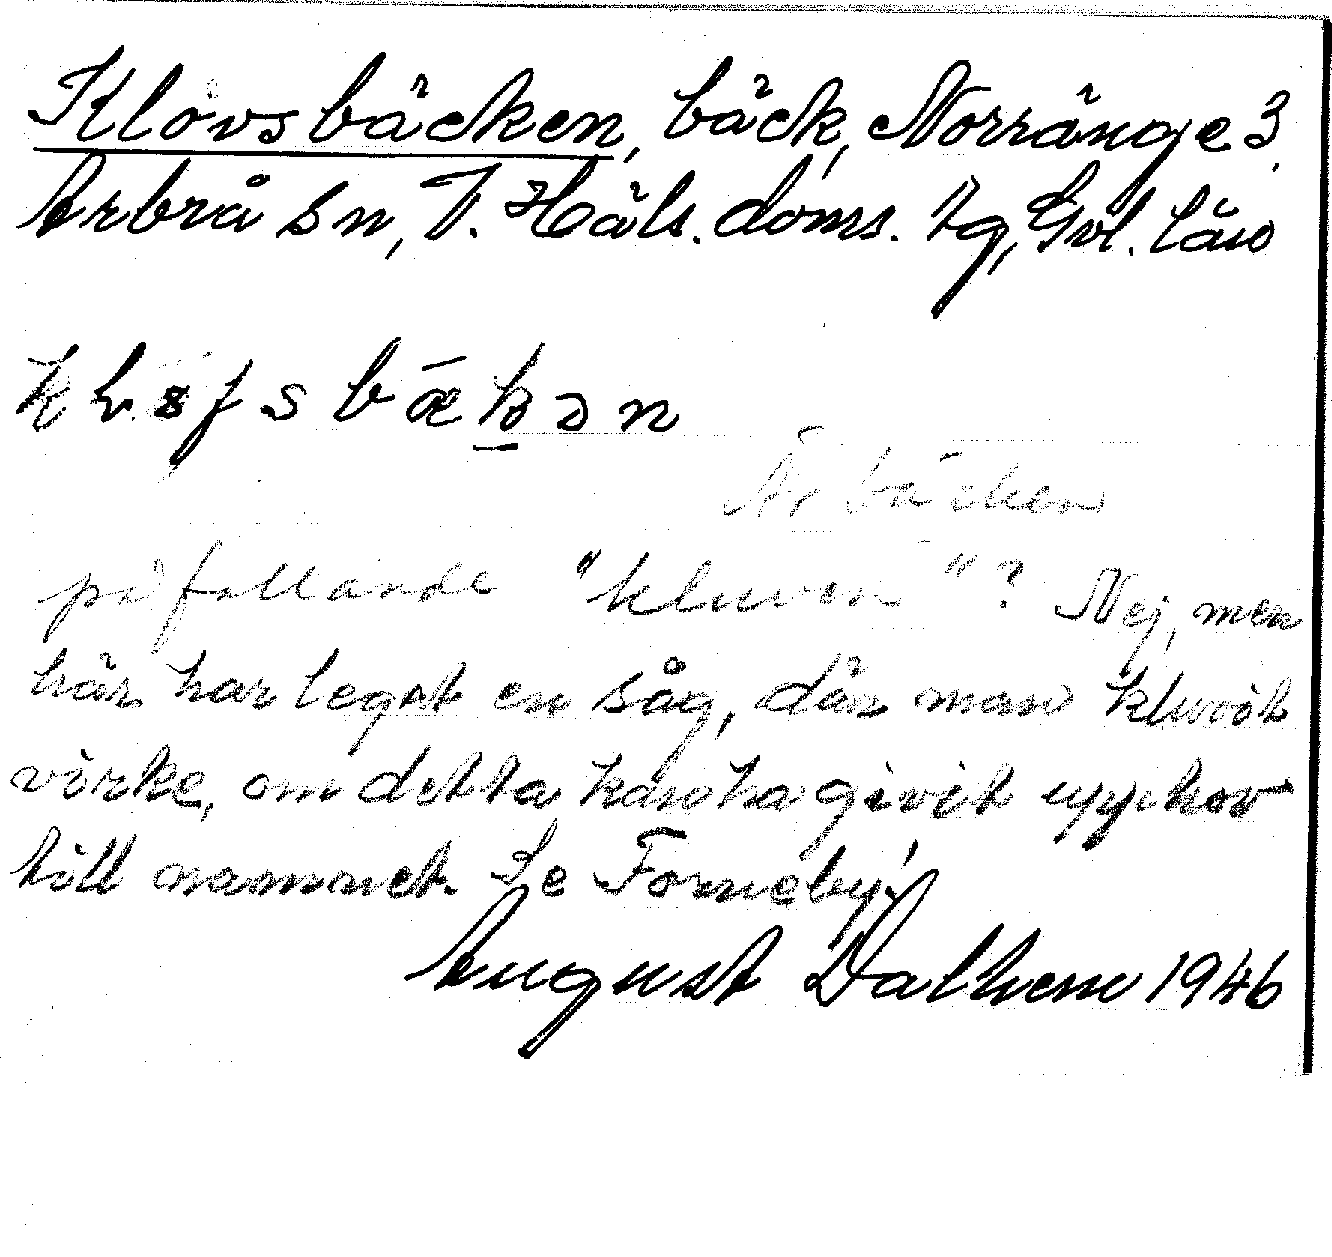 Klövsbäcken, bäck, Norränge 3
Arbrå sn, V. Häls. doms. Tg, Gvl. län
bækən
Är bäcken
påfallande "kluven"? Nej, men
här har legat en såg, där man kluvit
virke, om detta kan ha givit upphov
till namnet. Se Forneby!
August Dalhem 1946